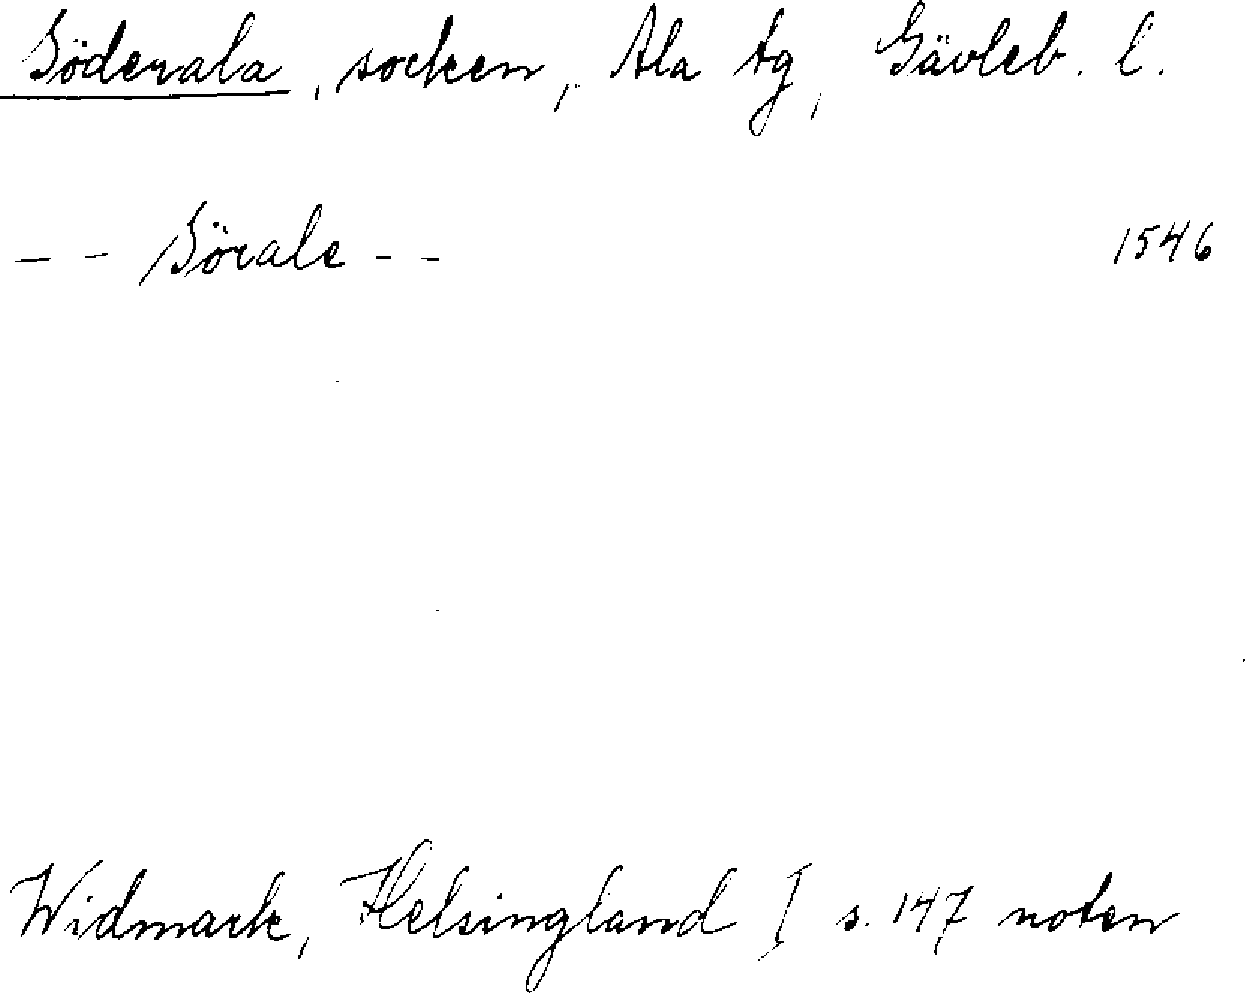 Söderala, socken, Ala tg, Gävleb. l.
- - Sörale - - 1546
Widmark, Helsingland I s. 147 noten